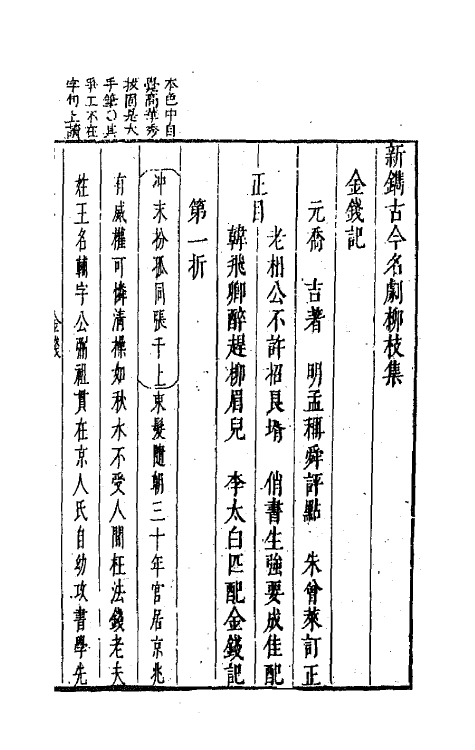 新鐫古今名劇柳枝集
金錢記
元喬　吉著　明孟稱舜評點　朱曾萊訂正
正目
老相公不許招良壻　俏書生強要成佳配
韓飛卿醉趕柳眉兒　李太白匹配金錢記
第一折
冲末扮孤同張千上束髮隨朝三十年官居京兆
有威權可憐清操如秋水不受人間枉法錢老夫
姓王名輔字公弼祖貫在京人氏自幼攻書學先
本色中自
覺高華秀
拔固是大
手筆〇其
爭工不在
字句上讀
金錢